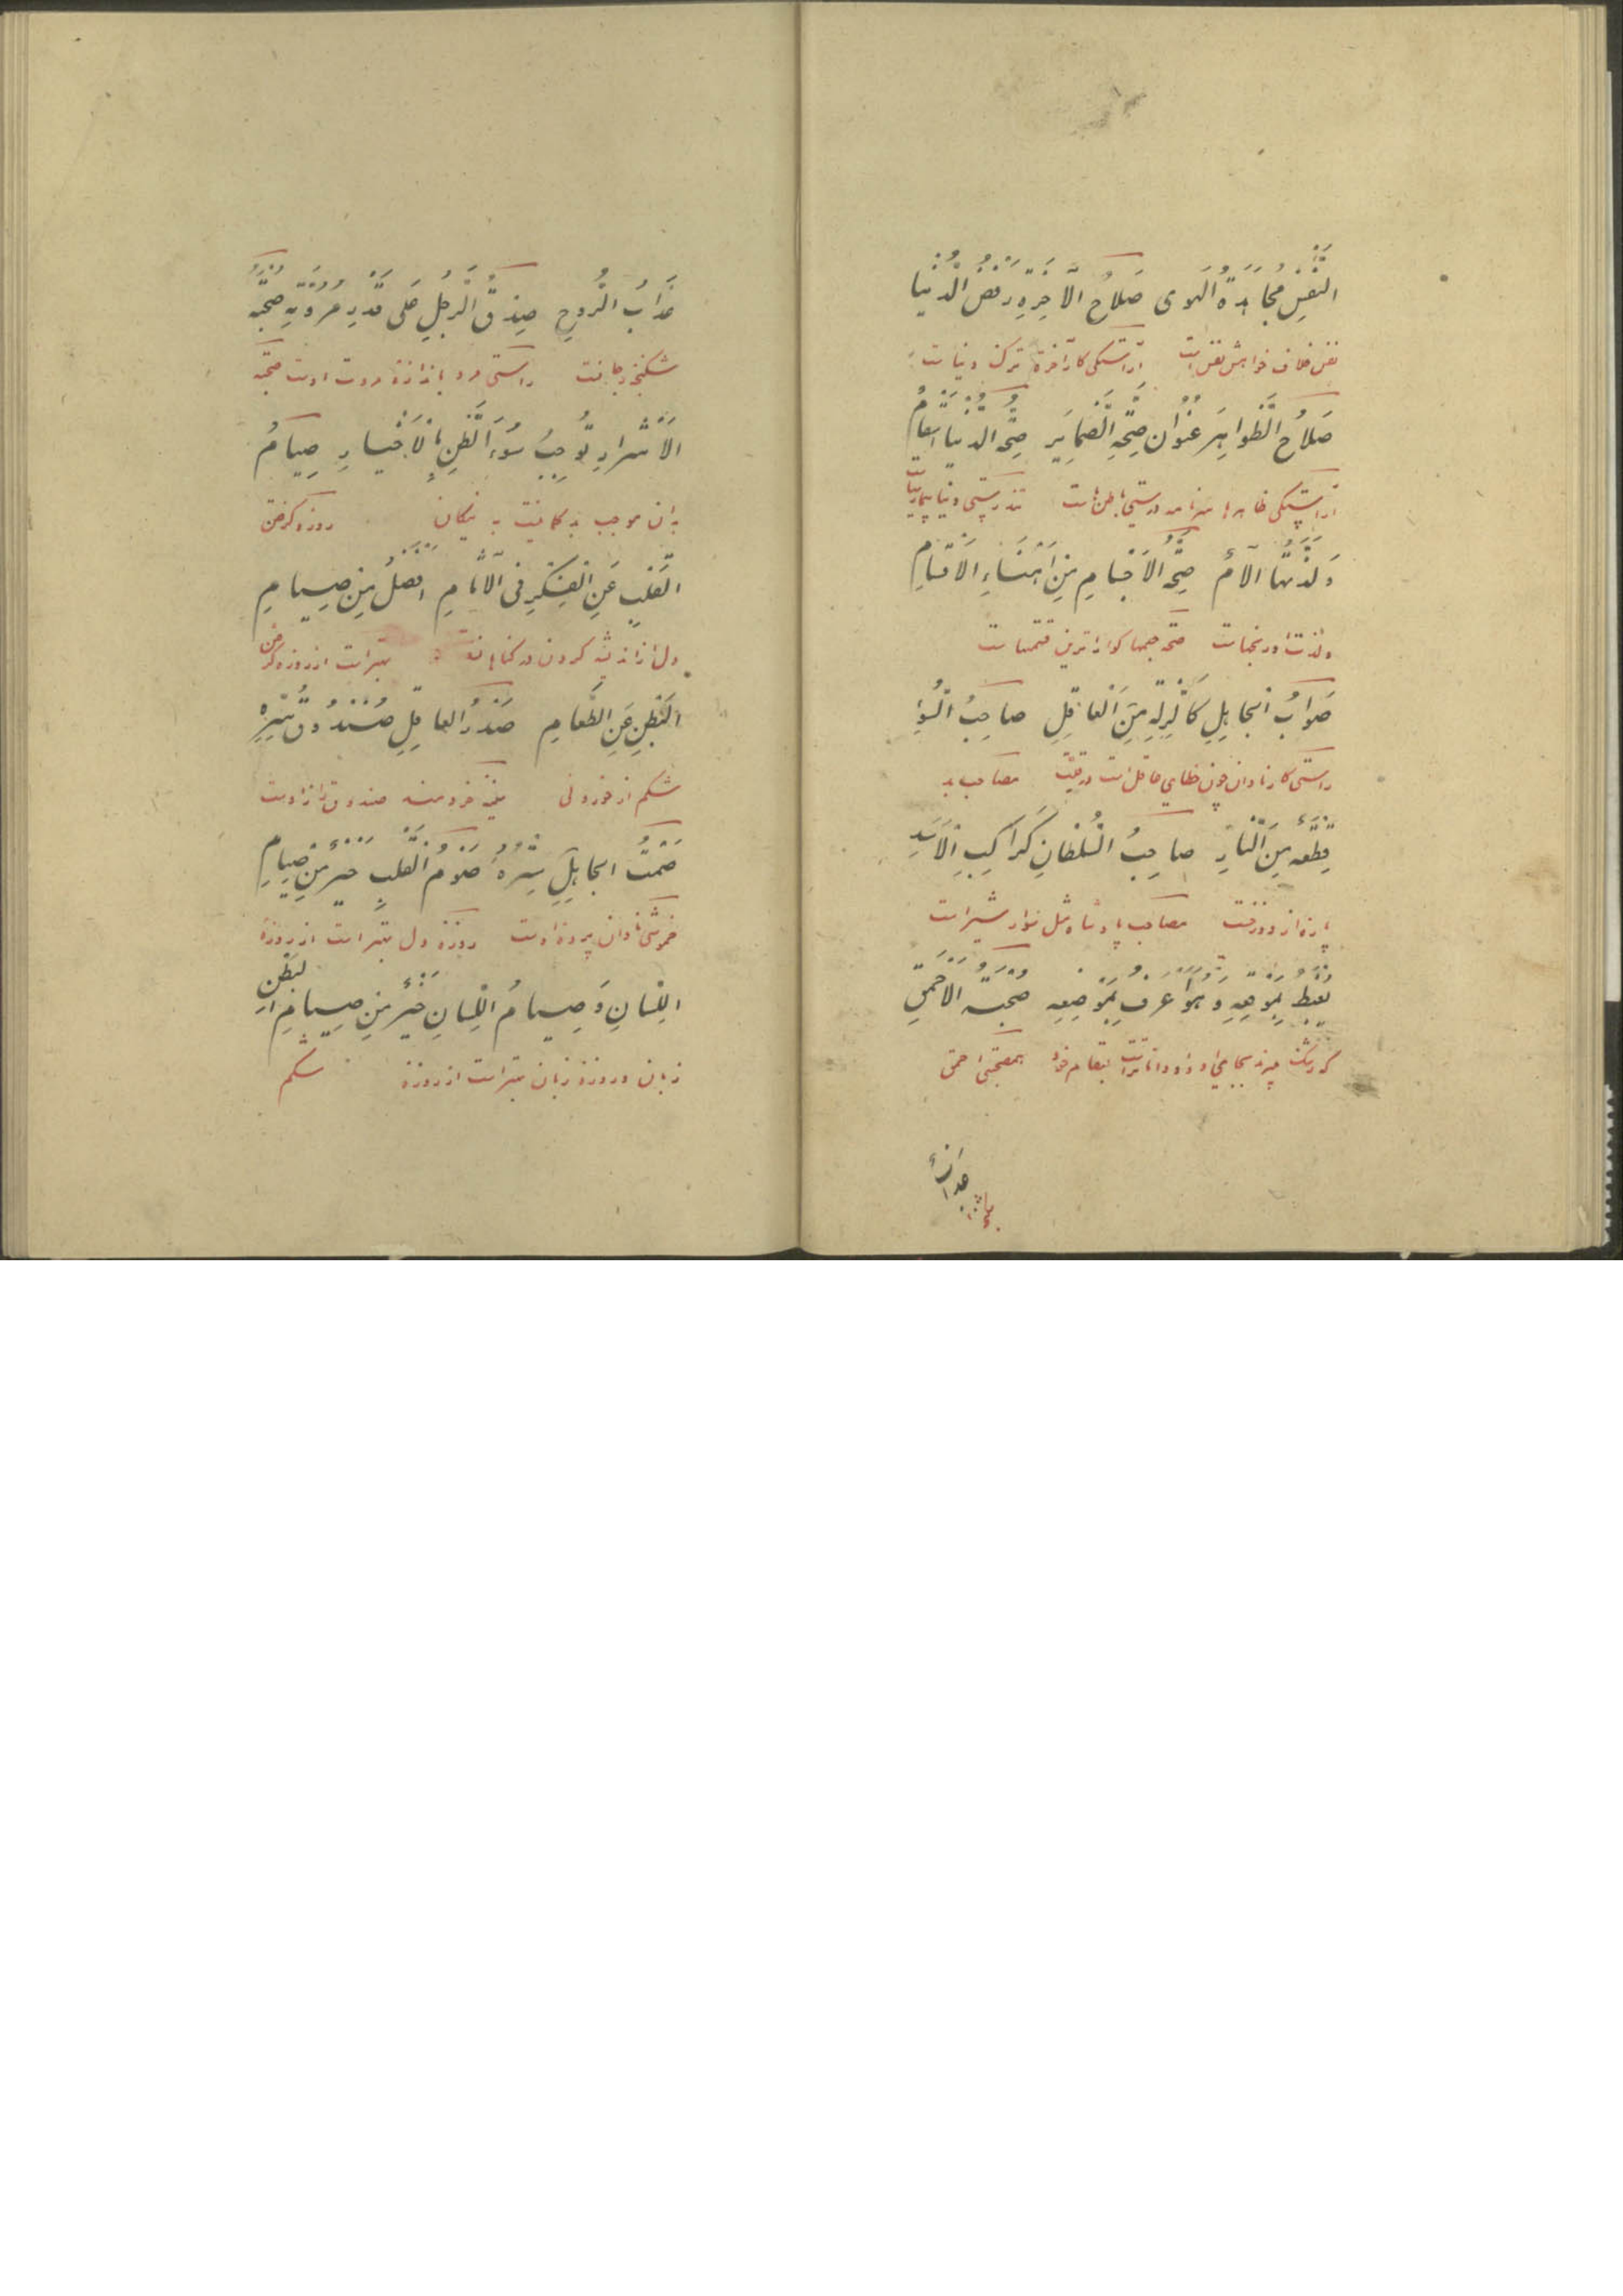 النَّفْسِ مُجَاهَدَةُ الْهَوٰى صَلَاحُ الْآخِرَةِ رَفْضُ الدُّنْيَا
نفس خلاف خواهش نفس است آراستگی کار آخرة ترک دنیاست
صَلَاحُ الظَّوَاهِرِ عُنْوَانُ صِحَّةِ الضَّمَایِرِ صِحَّةُ الدُّنْیَا اَسْقَامٌ
آراستگی ظاهرها سرنامه درستی باطن‌هاست تندرستی دنیا بیماریهاست
وَلَذَّتُهَا آلَامٌ صِحَّةُ الْاَجْسَامِ مِنْ اَهْنَاءِ الْاَقْسَامِ
ولذت او رنجهاست صحة جسمها کواراترین قسمتهاست
صَوَابُ الْجَاهِلِ كَالزَّلَّةِ مِنَ الْعَاقِلِ صَاحِبُ السُّوْءِ
راستی کار نادان چون خطای عاقل است مصاحب بد
قِطْعَةٌ مِنَ النَّارِ صَاحِبُ السُّلْطَانِ كَرَاكِبِ الْاَسَدِ
پارهٔ از دوزخست مصاحب پادشاه مثل سوار شیر است
يُغْبَطُ بِمَوْقِعِهِ وَهُوَ اَعْرَفُ بِمَوْضِعِهِ صُحْبَةُ الْاَحْمَقِ
که رشک میبرند بجای او و او داناتر است بمقام خود همصحبتی احمق
عَذَابُ
عَذَابُ الرُّوحِ صِدْقُ الرَّجُلِ عَلٰى قَدْرِ مُرُوَّتِهِ صُحْبَةُ
شکنجه جانست راستی مرد باندازهٔ مروت اوست صحبة
الْاَشْرَارِ تُوْجِبُ سُوْءَ الظَّنِّ بِالْاَخْيَارِ صِيَامُ
بدان موجب بدکمانیست به نیکان روزه کرفتن
الْقَلْبِ عَنِ الْفِكْرِ فِي الْآثَامِ اَفْضَلُ مِنْ صِيَامِ
دل از اندیشه کردن در کناهان بهتر است از روزه کرفتن
الْبَطْنِ عَنِ الطَّعَامِ صَدْرُ الْعَاقِلِ صُنْدُوْقُ سِرِّهِ
شکم از خوردنی سینه خردمند صندوق راز اوست
صَمْتُ الْجَاهِلِ سِتْرُهُ صَوْمُ الْقَلْبِ خَيْرٌ مِنْ صِيَامِ
خموشی نادان پردهٔ اوست روزهٔ دل بهتر است از روزهٔ
اللِّسَانِ وَصِيَامُ اللِّسَانِ خَيْرٌ مِنْ صِيَامِ الْبَطْنِ
زبان و روزهٔ زبان بهتر است از روزهٔ شکم